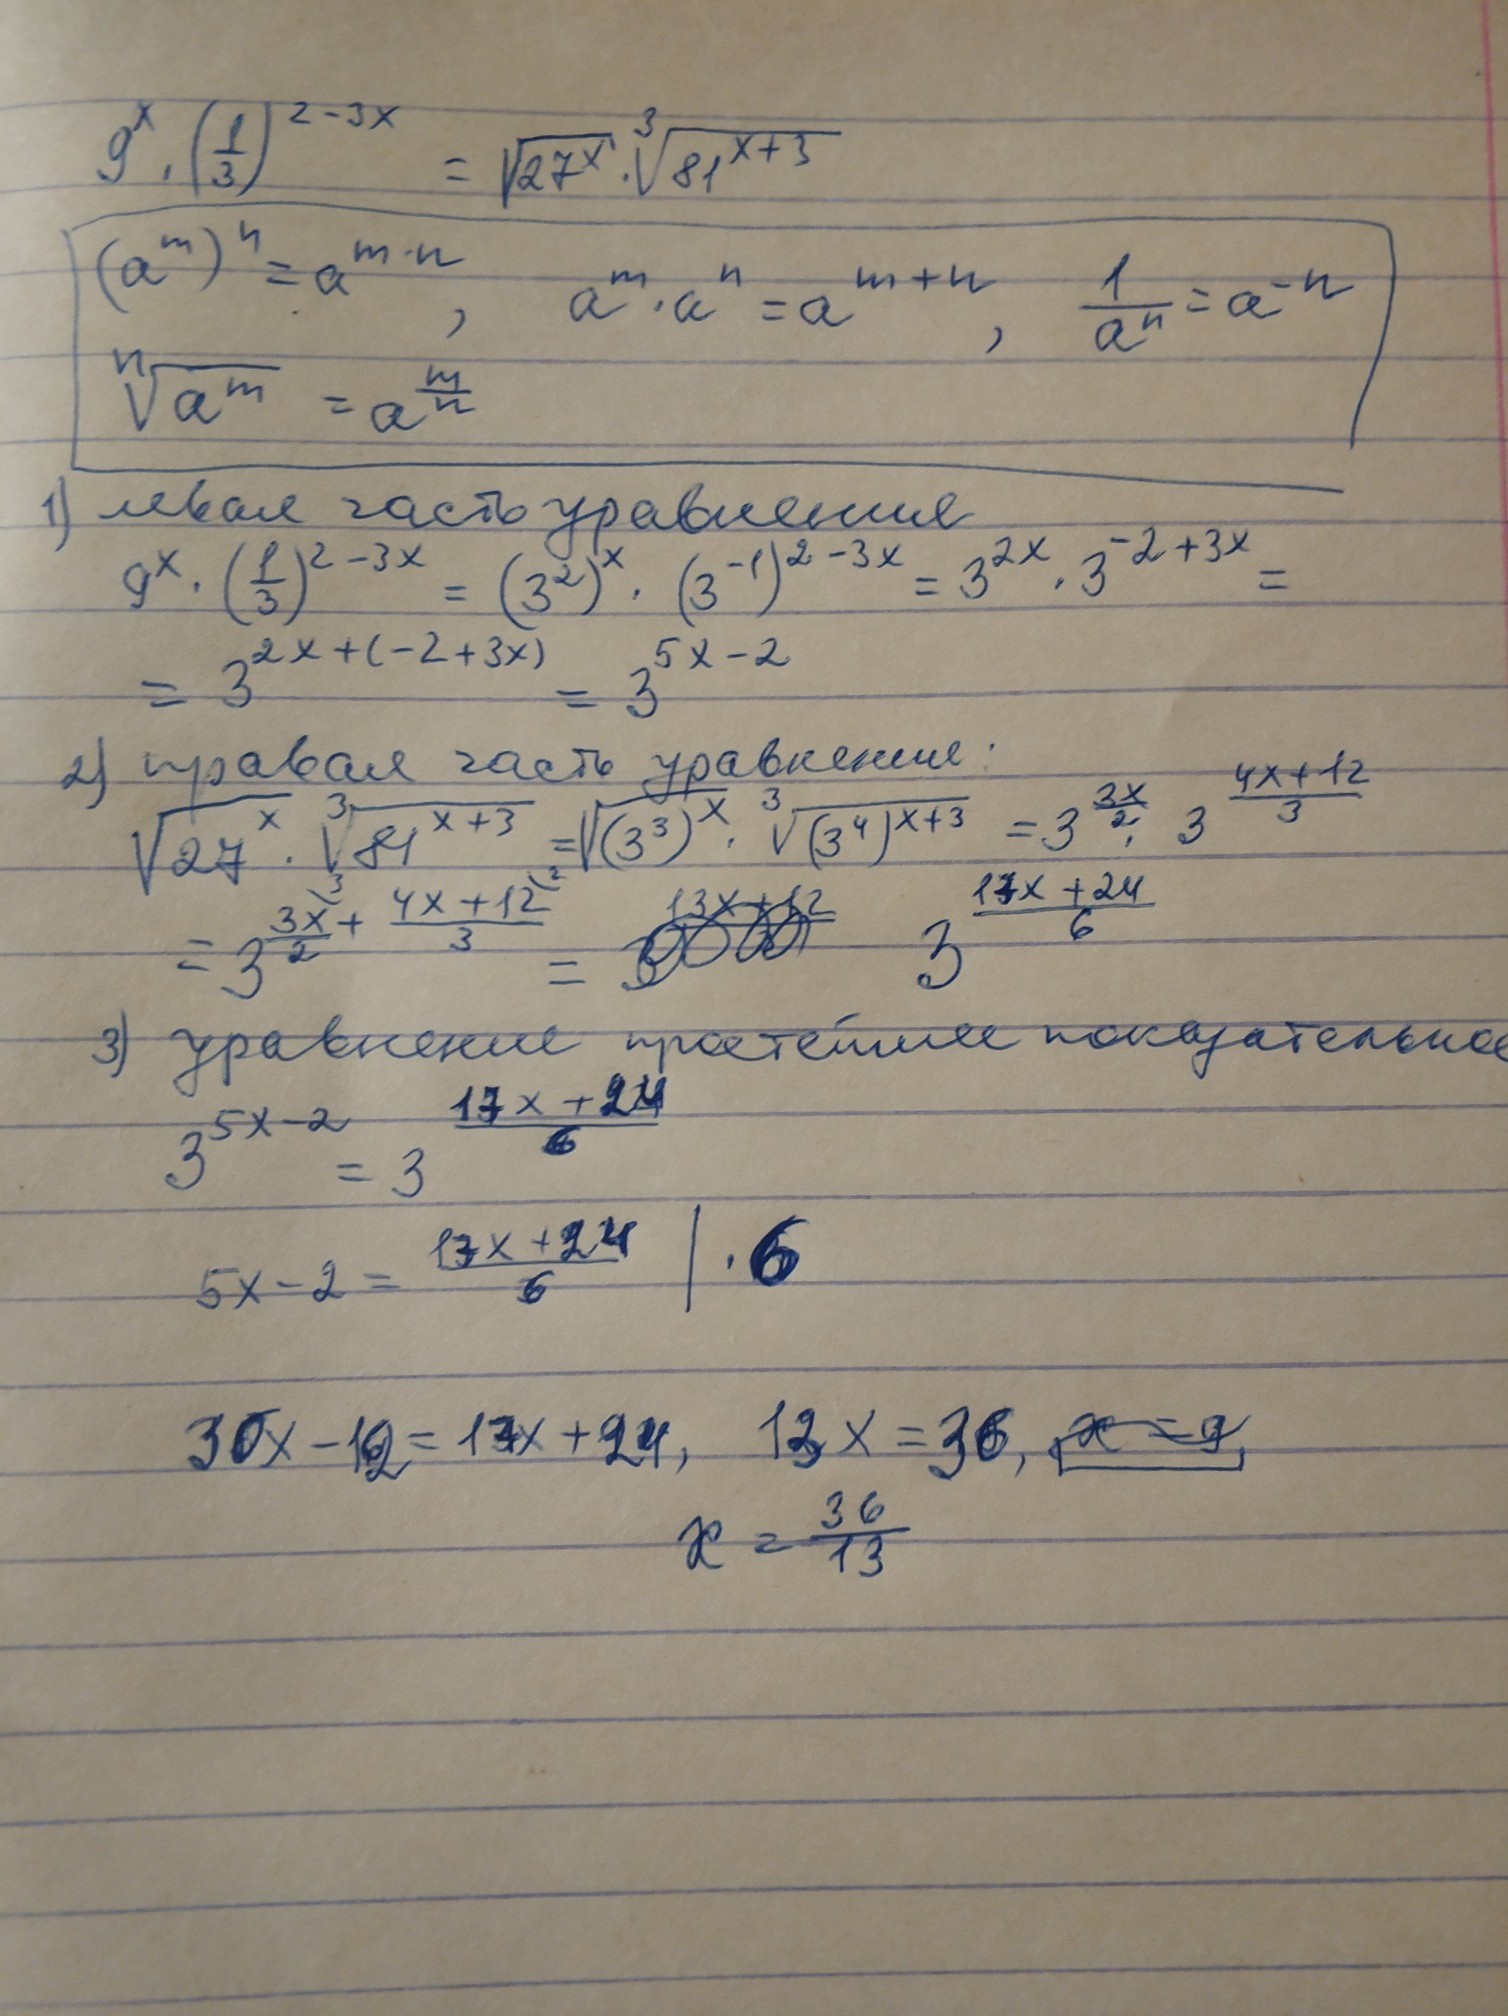 9^x · (1/3)^(2-3x) = √(27^x) · ³√(81^(x+3))
(a^m)^n = a^(m·n), a^m · a^n = a^(m+n), 1/a^n = a^(-n)
ⁿ√(a^m) = a^(m/n)
1) левая часть уравнения
9^x · (1/3)^(2-3x) = (3^2)^x · (3^(-1))^(2-3x) = 3^(2x) · 3^(-2+3x) =
= 3^(2x+(-2+3x)) = 3^(5x-2)
2) правая часть уравнения:
√(27^x) · ³√(81^(x+3)) = √((3^3)^x) · ³√((3^4)^(x+3)) = 3^(3x/2) · 3^((4x+12)/3)
= 3^(3x/2 + (4x+12)/3) = 3^((17x+24)/6)
3) уравнение простейшее показательное
3^(5x-2) = 3^((17x+24)/6)
5x-2 = (17x+24)/6 | · 6
30x-12 = 17x+24, 13x = 36,
x = 36/13